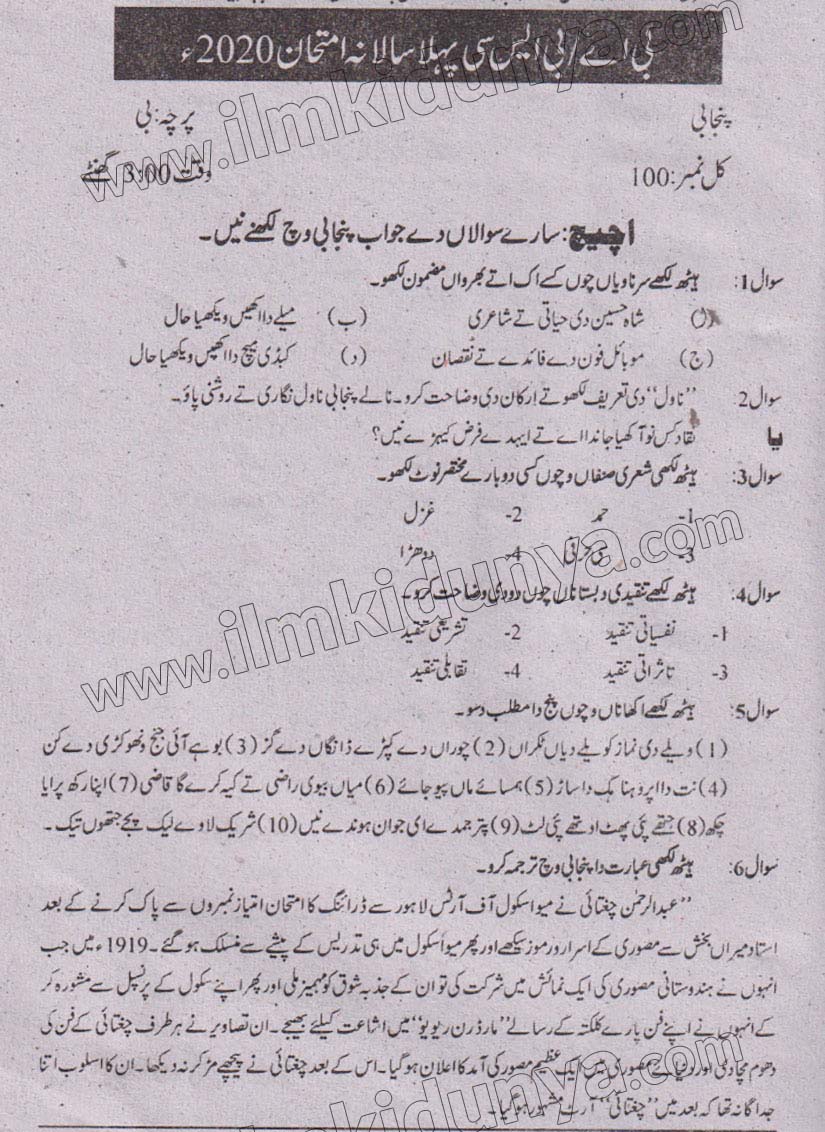 بی اے/بی ایس سی پہلا سالانہ امتحان 2020ء
پنجابی پرچہ: بی
کل نمبر: 100 وقت 3:00 گھنٹے
اچیچ: سارے سوالاں دے جواب پنجابی وچ لکھنے نیں۔
سوال 1: ہیٹھ لکھے سرناویاں چوں کسے اک اتے بھرواں مضمون لکھو۔
(ا) شاہ حسین دی حیاتی تے شاعری (ب) میلے دا اکھیں ویکھیا حال
(ج) موبائل فون دے فائدے تے نقصان (د) کبڈی میچ دا اکھیں ویکھیا حال
سوال 2: ”ناول“ دی تعریف لکھو تے ارکان دی وضاحت کرو۔ نالے پنجابی ناول نگاری تے روشنی پاؤ۔
یا نقاد کس نو آکھیا جاندا اے تے ایہدے فرض کیہڑے نیں؟
سوال 3: ہیٹھ لکھی شعری صنفاں وچوں کسی دو بارے مختصر نوٹ لکھو۔
1- حمد 2- غزل
3- سی حرفی 4- دوھڑا
سوال 4: ہیٹھ لکھے تنقیدی دبستاناں چوں دو دی وضاحت کرو۔
1- نفسیاتی تنقید 2- تشریعی تنقید
3- تاثراتی تنقید 4- تقابلی تنقید
سوال 5: ہیٹھ لکھے اکھاناں وچوں پنج دا مطلب دسو۔
(1) ویلے دی نماز کویلے دیاں ٹکراں (2) چوراں دے کپڑے ڈانگاں دے گز (3) بوہے آئی جنج ونھو کڑی دے کن
(4) نت دا اپروہنا مک دا ساڑ (5) ہمسائے ماں پیو جائے (6) میاں بیوی راضی تے کیہ کرے گا قاضی (7) اپنا رکھ پرایا
چکھ (8) جتھے پئی پھٹ اوتھے پئی لٹ (9) پتر جمدے ای جوان ہوندے نیں (10) شریک لاوے لیک پجے جتھوں تیک۔
سوال 6: ہیٹھ لکھی عبارت دا پنجابی وچ ترجمہ کرو۔
”عبدالرحمٰن چغتائی نے میو اسکول آف آرٹس لاہور سے ڈرائنگ کا امتحان امتیاز نمبروں سے پاک کرنے کے بعد
استاد میراں بخش سے مصوری کے اسرار و رموز سیکھے اور پھر میو اسکول میں ہی تدریس کے پیشے سے منسلک ہو گئے۔ 1919ء میں جب
انہوں نے ہندوستانی مصوری کی ایک نمائش میں شرکت کی تو ان کے جذبہ شوق کو مہمیز ملی اور پھر اپنے سکول کے پرنسپل سے مشورہ کر
کے انہوں نے اپنے فن پارے کلکتہ کے رسالے ”مارڈرن ریویو“ میں اشاعت کیلئے بھیجے۔ ان تصاویر نے ہر طرف چغتائی کے فن کی
دھوم مچادی اور دنیائے مصوری میں ایک عظیم مصور کی آمد کا اعلان ہو گیا۔ اس کے بعد چغتائی نے پیچھے مڑ کر نہ دیکھا۔ ان کا اسلوب اتنا
جداگانہ تھا کہ بعد میں ”چغتائی“ آرٹ مشہور ہو گیا۔
www.ilmkidunya.com
www.ilmkidunya.com
www.ilmkidunya.com